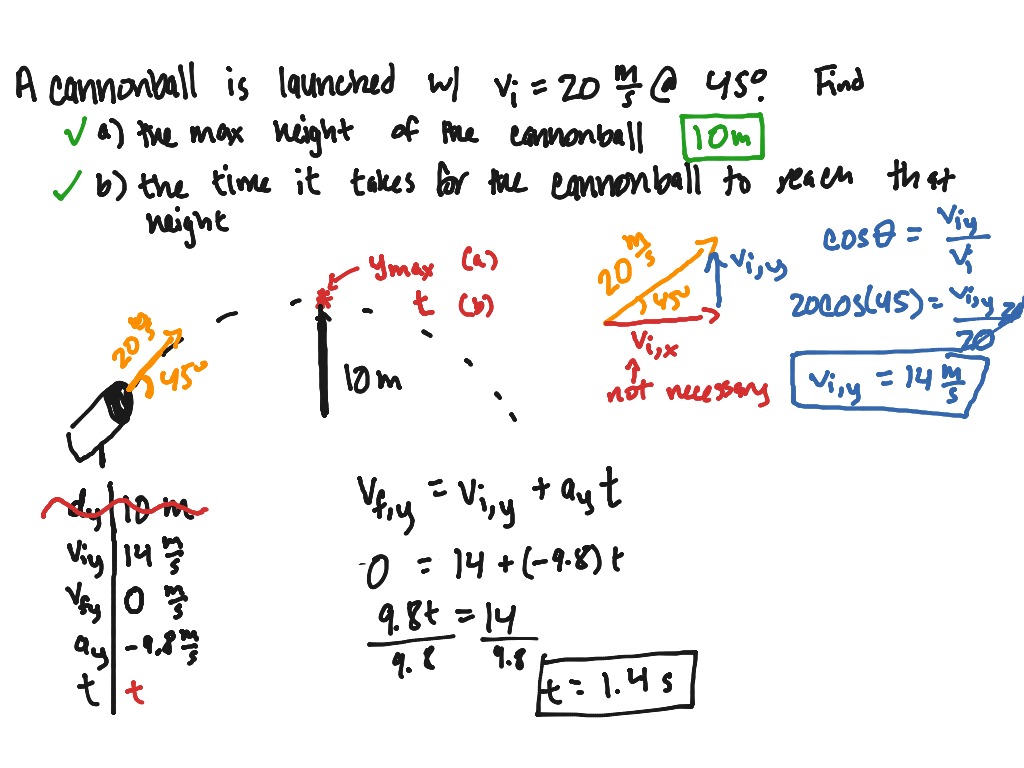 A cannonball is launched w/ vi = 20 m/s @ 45°. Find
✓ a) the max height of the cannonball 10m
✓ b) the time it takes for the cannonball to reach that
height
cosθ = viy/vi
20 m/s
45°
vi,y
vi,x
not necessary
20cos(45) = vi,y/20 20
vi,y = 14 m/s
ymax (a)
t (b)
20 m/s
45°
10m
dy 10 m
viy 14 m/s
vfy 0 m/s
ay -9.8 m/s
t t
Vf,y = Vi,y + ay t
0 = 14 + (-9.8) t
9.8t = 14
9.8 9.8
t = 1.4 s